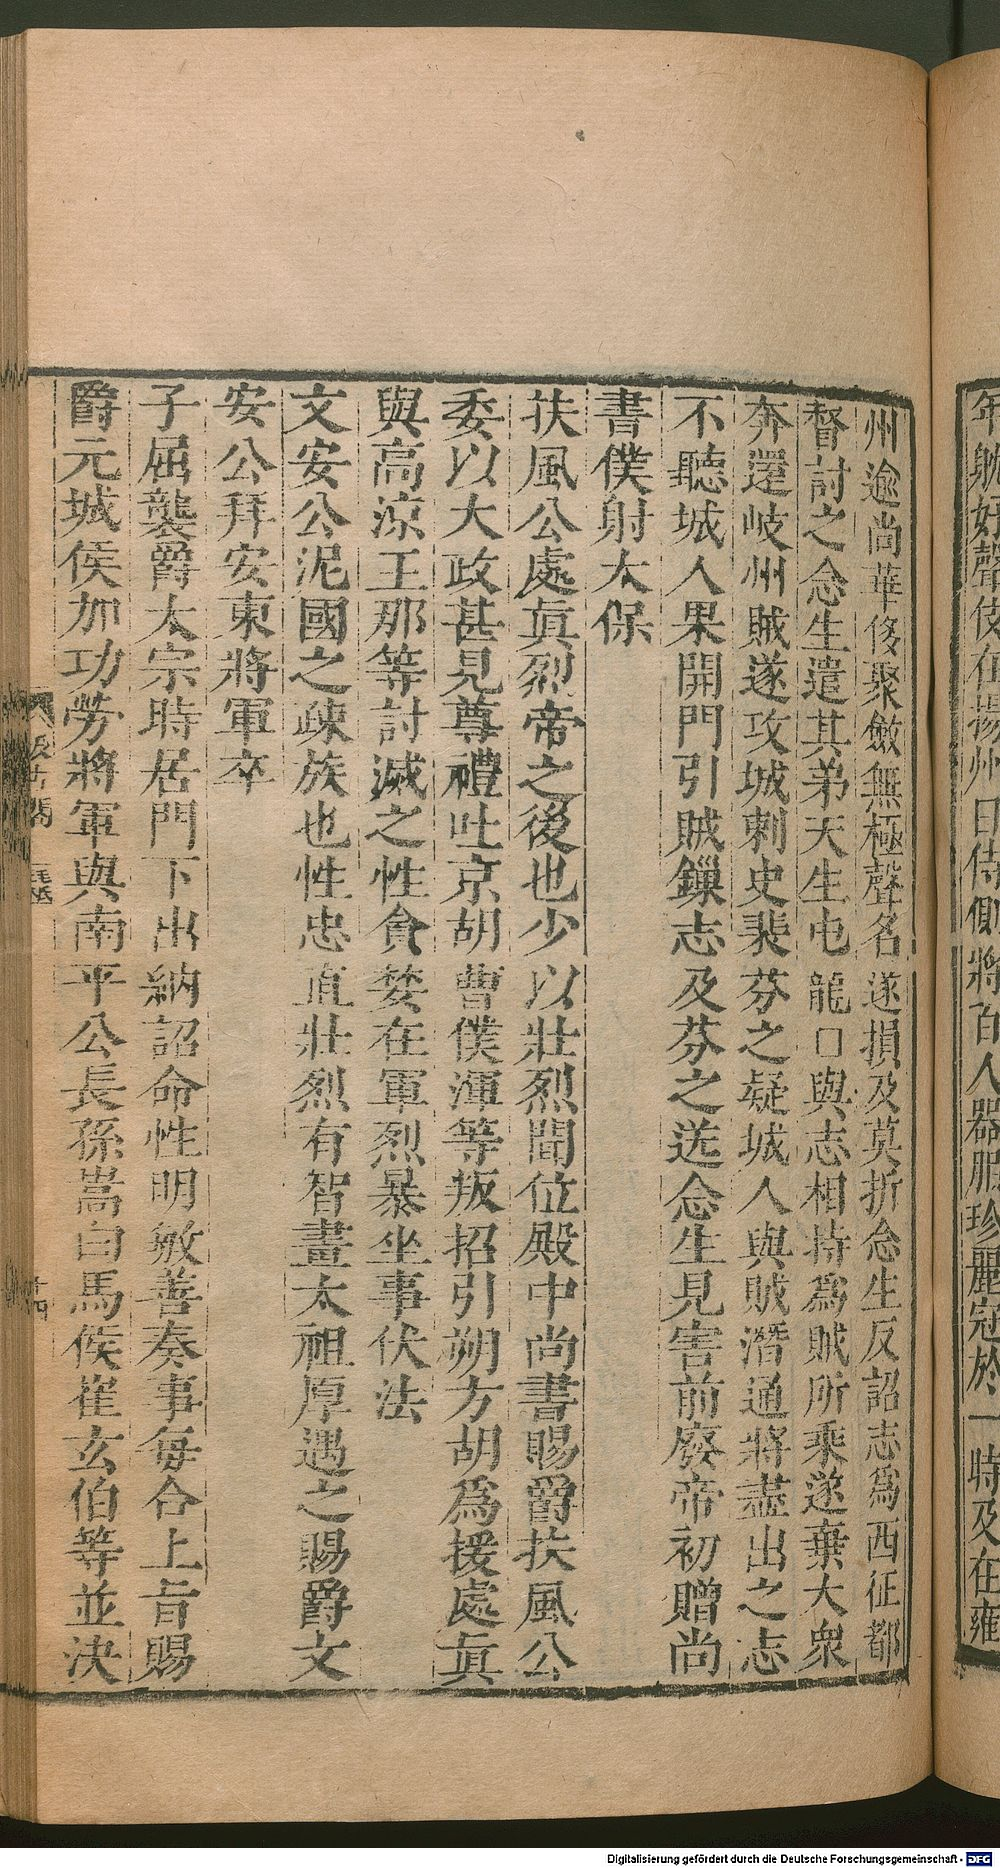 年躭好聲伎在揚州日侍側將百人器服珍麗冠於一時及在雍
州逾尚華侈聚斂無極聲名遂損及莫折念生反詔志爲西征都
督討之念生遣其弟天生屯龍口與志相持爲賊所乘遂棄大衆
奔還岐州賊遂攻城刺史裴芬之疑城人與賊潛通將盡出之志
不聽城人果開門引賊鏁志及芬之送念生見害前廢帝初贈尚
書僕射太保
扶風公處眞烈帝之後也少以壯烈聞位殿中尚書賜爵扶風公
委以大政甚見尊禮吐京胡曹僕渾等叛招引朔方胡爲援處眞
與高涼王那等討滅之性貪婪在軍烈暴坐事伏法
文安公泥國之疎族也性忠直壯烈有智畫太祖厚遇之賜爵文
安公拜安東將軍卒
子屈襲爵太宗時居門下出納詔命性明敏善奏事每合上旨賜
爵元城侯加功勞將軍與南平公長孫嵩白馬侯崔玄伯等並決
十四
Digitalisierung gefördert durch die Deutsche Forschungsgemeinschaft - DFG